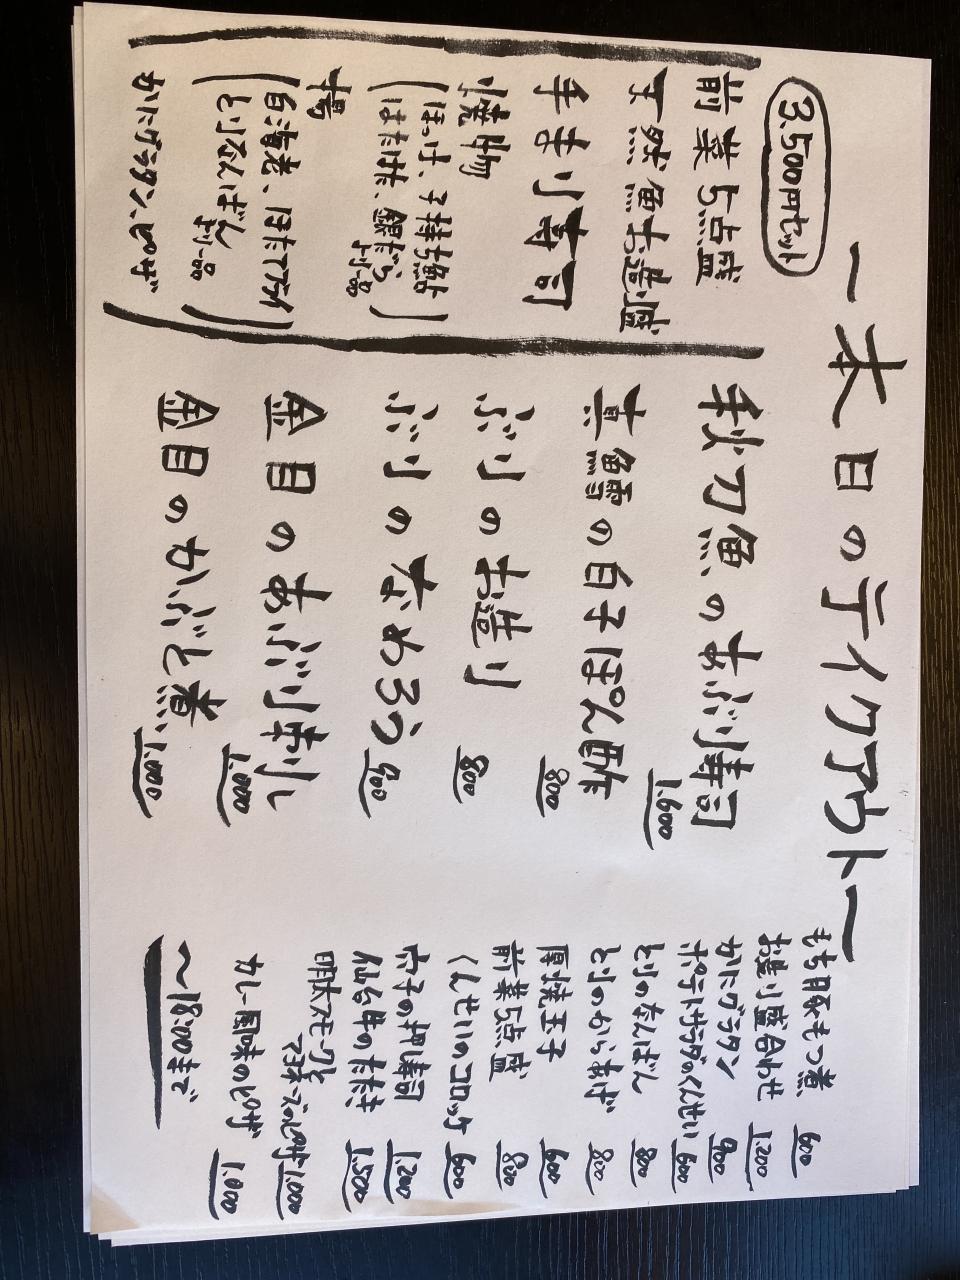 〜本日のテイクアウト〜
3,500円セット
前菜5点盛
天然魚お造り盛
手まり寿司
焼物
(ほっけ、子持ち鮎
はたはた、銀だら)
より一品
揚
(白海老、ほたてフライ
とりなんばん)
より一品
カニグラタン、ピザ
秋刀魚のあぶり寿司 1,600
真鱈の白子ぽん酢 800
ぶりのお造り 800
ぶりのなめろう 900
金目のあぶり刺し 1,000
金目のかぶと煮 1,000
もち豚もつ煮 600
お造り盛合わせ 1,200
かにグラタン 900
ポテトサラダのくんせい 600
とりのなんばん 800
とりのからあげ 800
厚焼玉子 600
前菜5点盛 800
くんせいのコロッケ 600
穴子の押し寿司 1,200
仙台牛のたたき 1,500
明太スモークと
マヨネーズのピザ 1,000
カレー風味のピザ 1,000
〜18:00まで